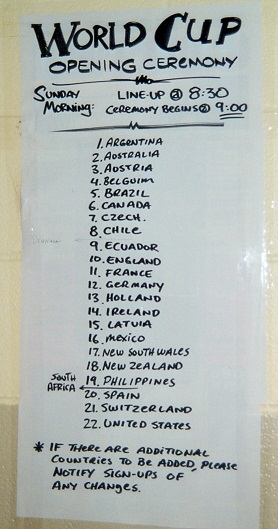 WORLD CUP
OPENING CEREMONY
SUNDAY MORNING: LINE-UP @ 8:30
CEREMONY BEGINS @ 9:00
1. ARGENTINA
2. AUSTRALIA
3. AUSTRIA
4. BELGUIM
5. BRAZIL
6. CANADA
7. CZECH.
8. CHILE
9. ECUADOR
10. ENGLAND
11. FRANCE
12. GERMANY
13. HOLLAND
14. IRELAND
15. LATVIA
16. MEXICO
17. NEW SOUTH WALES
18. NEW ZEALAND
SOUTH AFRICA
19. PHILIPPINES
20. SPAIN
21. SWITZERLAND
22. UNITED STATES
* IF THERE ARE ADDITIONAL
COUNTRIES TO BE ADDED, PLEASE
NOTIFY SIGN-UPS OF
ANY CHANGES.